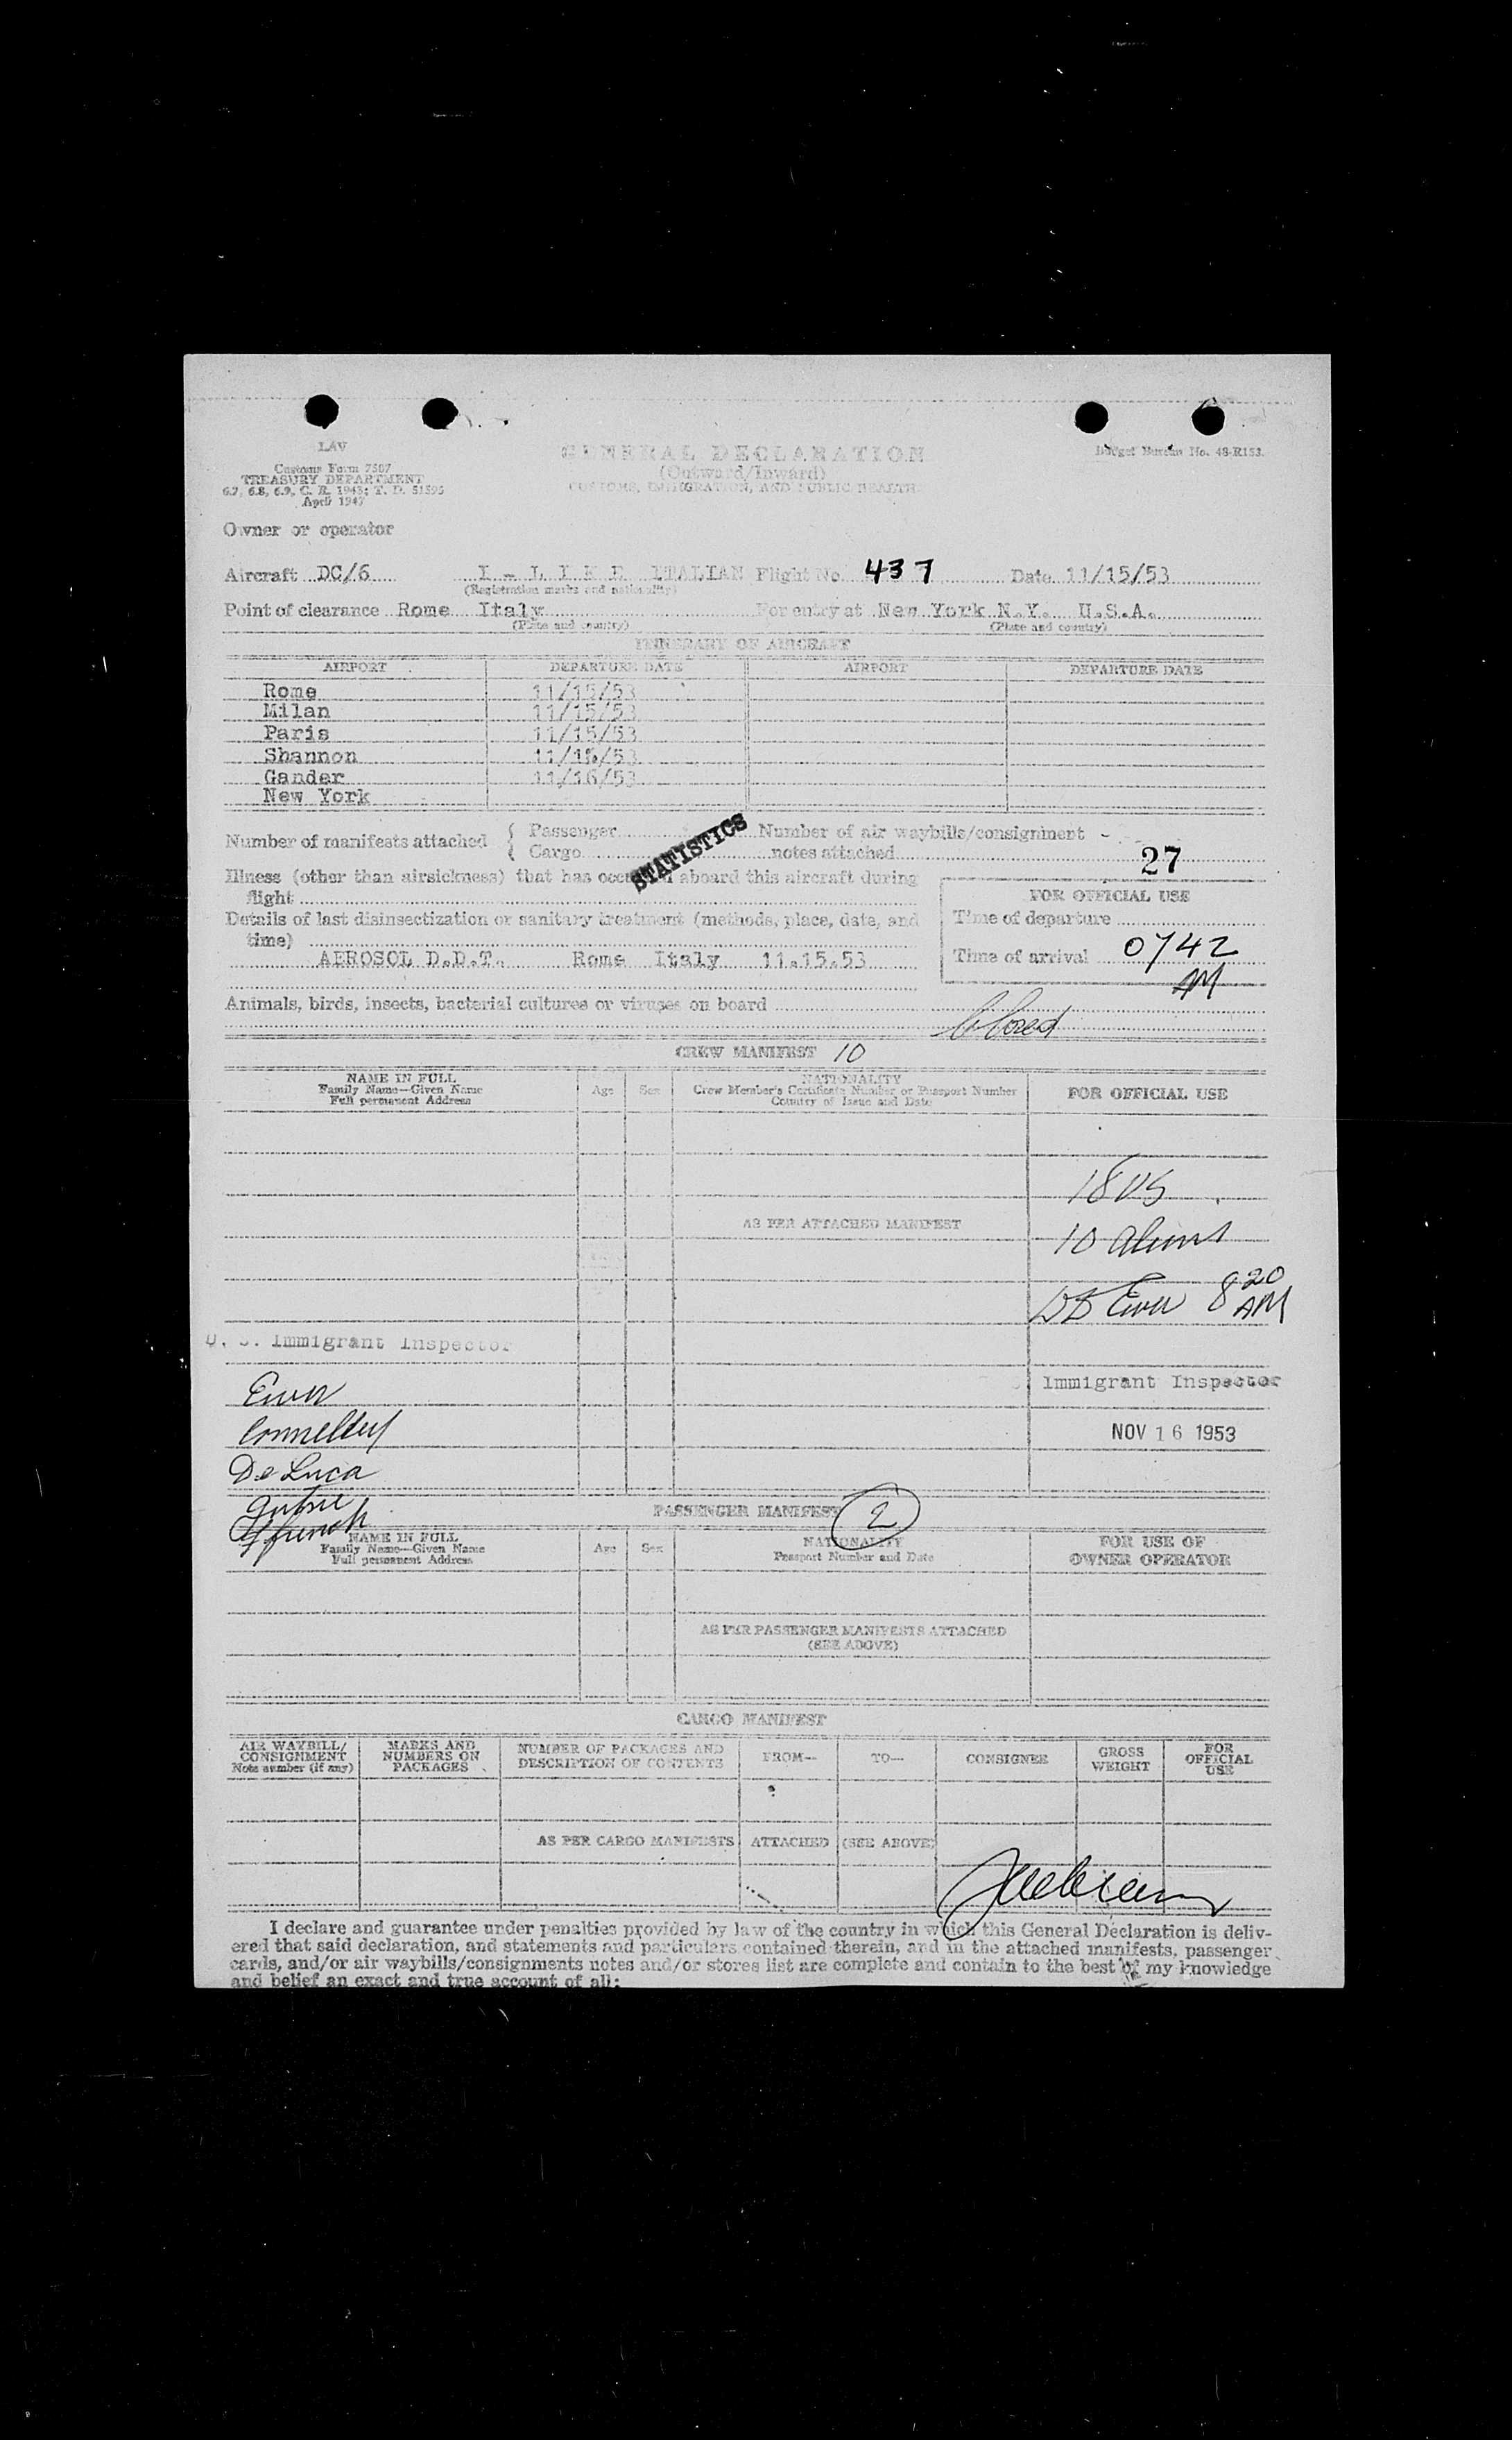 LAV
Customs Form 7507
TREASURY DEPARTMENT
6.7, 6.8, 6.9, C. R. 1943; T. D. 51595
April 1947
GENERAL DECLARATION
(Outward/Inward)
CUSTOMS, IMMIGRATION, AND PUBLIC HEALTH
Budget Bureau No. 48-R153.
Owner or operator
Aircraft DC/6 I - L I K E ITALIAN Flight No. 437 Date 11/15/53
(Registration marks and nationality)
Point of clearance Rome Italy For entry at New York N.Y. U.S.A.
(Place and country) (Place and country)
ITINERARY OF AIRCRAFT
AIRPORT DEPARTURE DATE AIRPORT DEPARTURE DATE
Rome 11/15/53
Milan 11/15/53
Paris 11/15/53
Shannon 11/15/53
Gander 11/16/53
New York
Number of manifests attached { Passenger Number of air waybills/consignment
Cargo notes attached
STATISTICS
27
Illness (other than airsickness) that has occurred aboard this aircraft during
flight
Details of last disinsectization or sanitary treatment (methods, place, date, and
time)
AEROSOL D.D.T. Rome Italy 11.15.53
FOR OFFICIAL USE
Time of departure
Time of arrival 0742
AM
Animals, birds, insects, bacterial cultures or viruses on board
CREW MANIFEST 10
NAME IN FULL
Family Name—Given Name
Full permanent Address
Age
Sex
NATIONALITY
Crew Member's Certificate Number or Passport Number
Country of Issue and Date
FOR OFFICIAL USE
18 US
AS PER ATTACHED MANIFEST
10 aliens
8 20
AM
U. S. Immigrant Inspector
Immigrant Inspector
Connelly
NOV 16 1953
De Luca
PASSENGER MANIFEST 2
NAME IN FULL
Family Name—Given Name
Full permanent Address
Age
Sex
NATIONALITY
Passport Number and Date
FOR USE OF
OWNER OPERATOR
AS PER PASSENGER MANIFESTS ATTACHED
(SEE ABOVE)
CARGO MANIFEST
AIR WAYBILL/
CONSIGNMENT
Note number (if any)
MARKS AND
NUMBERS ON
PACKAGES
NUMBER OF PACKAGES AND
DESCRIPTION OF CONTENTS
FROM—
TO—
CONSIGNEE
GROSS
WEIGHT
FOR
OFFICIAL
USE
AS PER CARGO MANIFESTS ATTACHED (SEE ABOVE)
I declare and guarantee under penalties provided by law of the country in which this General Declaration is deliv-
ered that said declaration, and statements and particulars contained therein, and in the attached manifests, passenger
cards, and/or air waybills/consignments notes and/or stores list are complete and contain to the best of my knowledge
and belief an exact and true account of all: